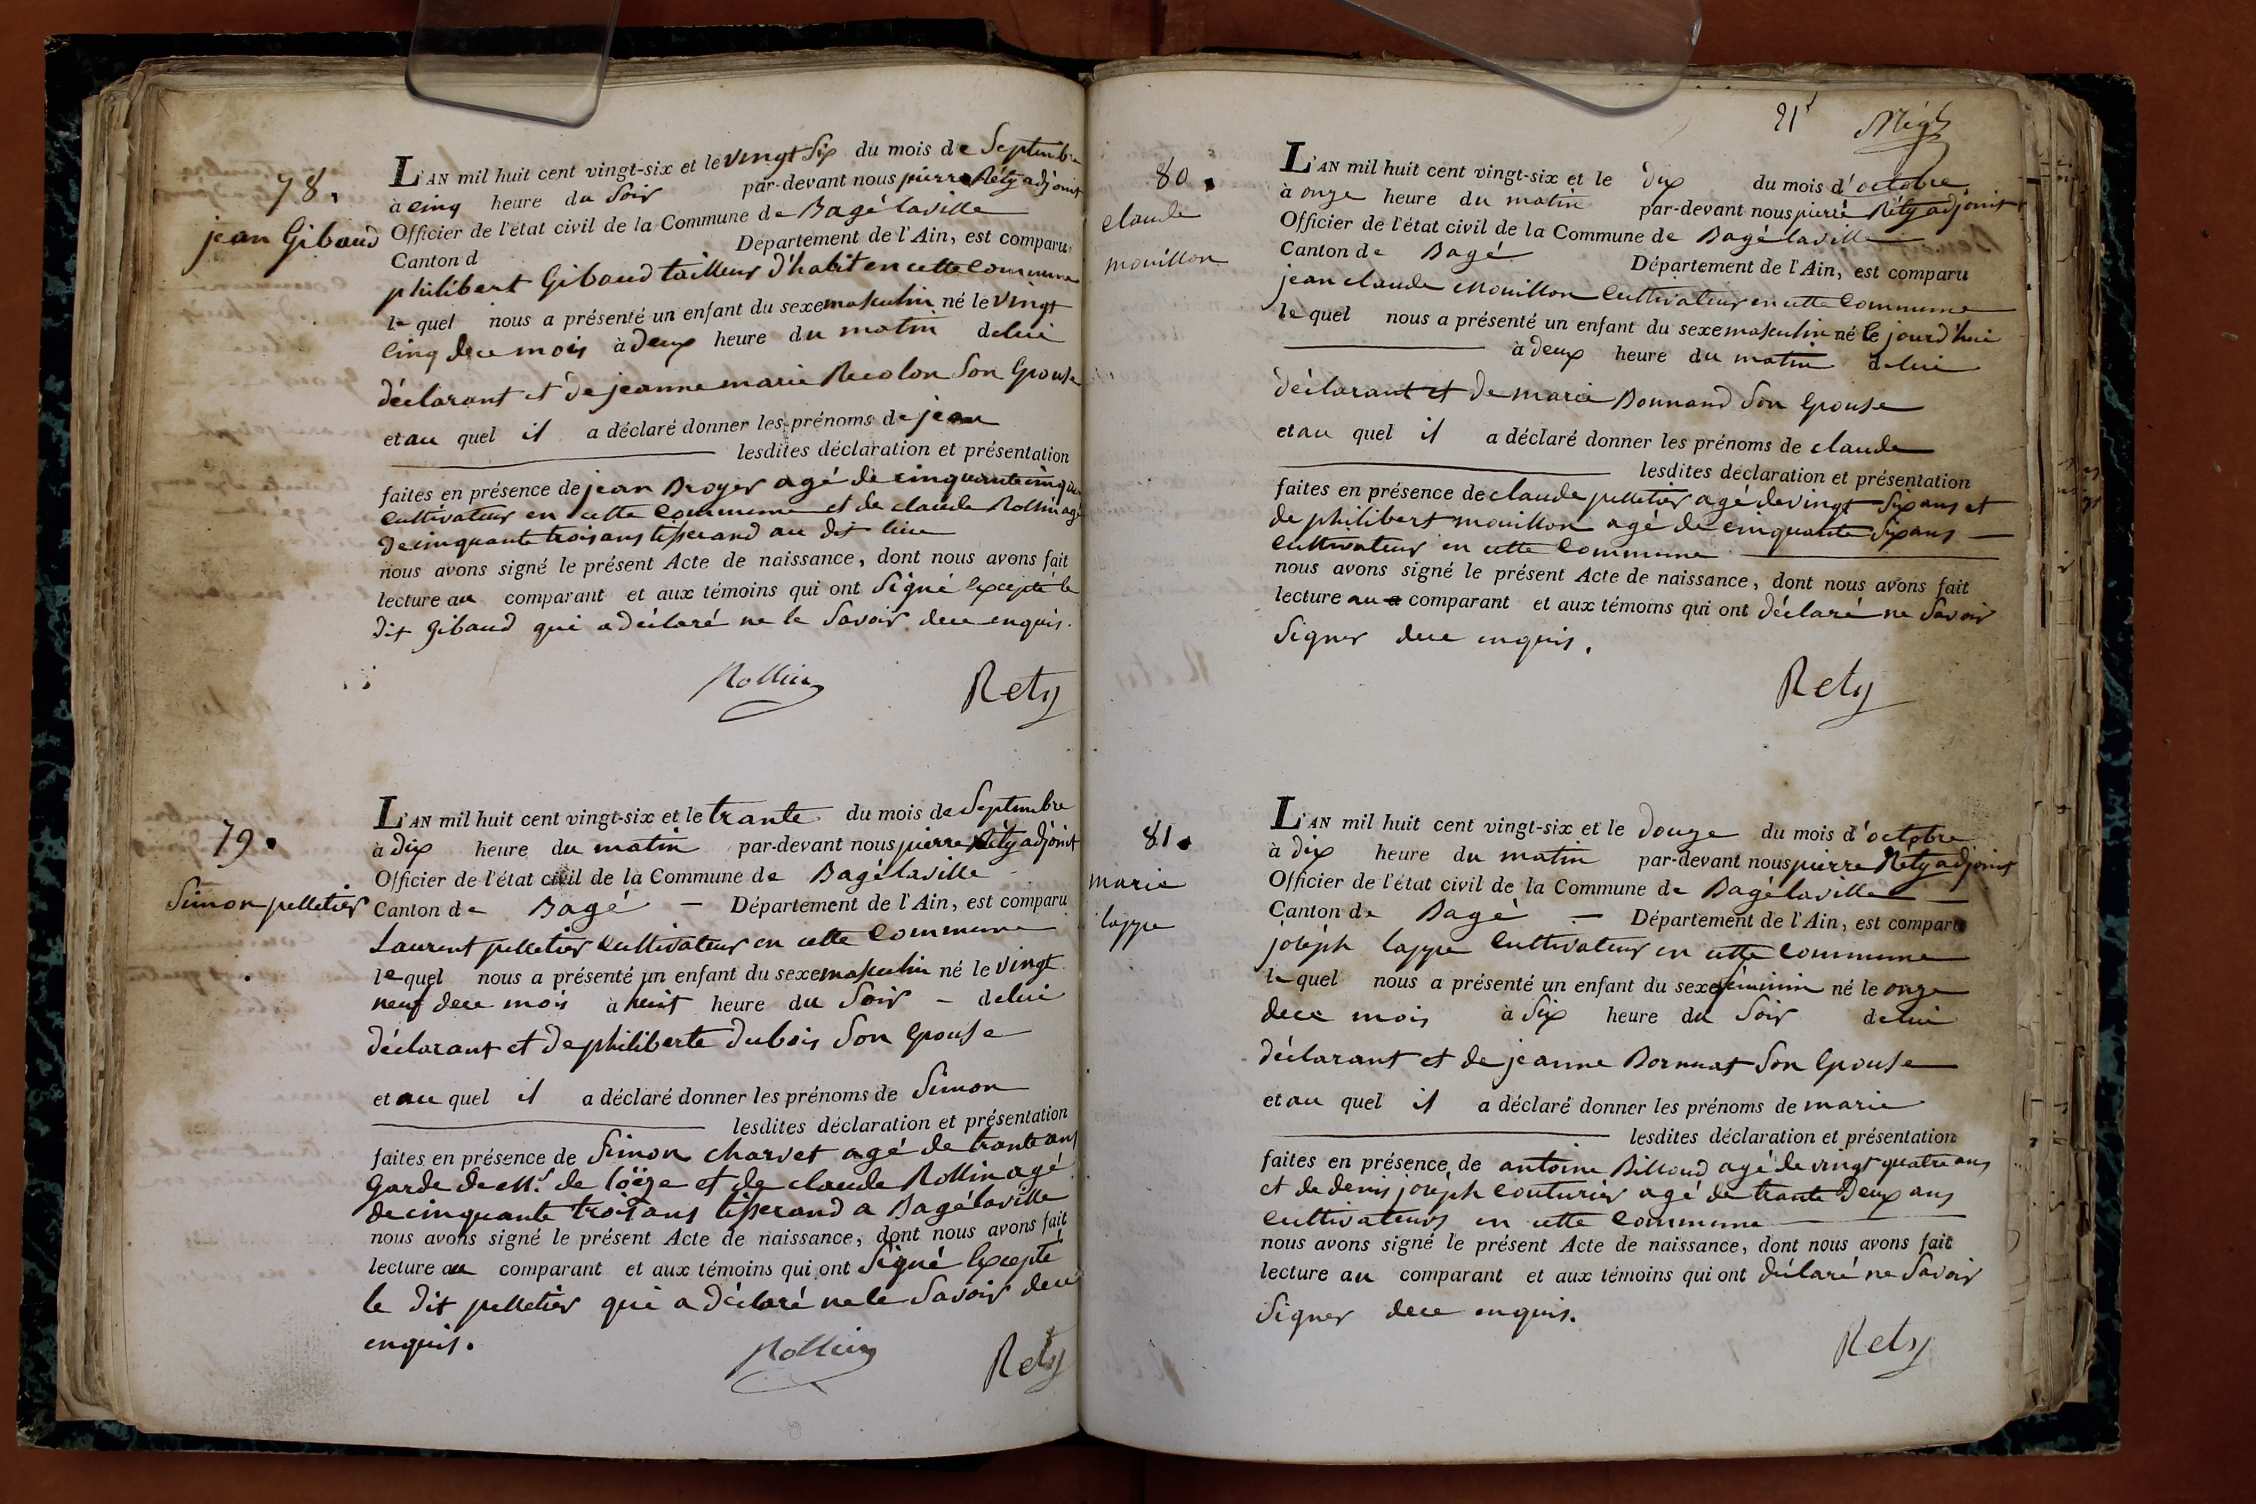 78.
jean Gibaud
L'AN mil huit cent vingt-six et le vingt six du mois de Septembre
à cinq heure du Soir par-devant nous pierre Réty adjoint
Officier de l'état civil de la Commune de Bagé laville
Canton d Département de l'Ain, est comparu
philibert Gibaud tailleur d'habit en cette commune
le quel nous a présenté un enfant du sexe masculin né le vingt
cinq dece mois à deux heure du matin de lui
déclarant et de jeanne marie Recolon Son Epouse
et au quel il a déclaré donner les prénoms de jean
lesdites déclaration et présentation
faites en présence de jean Broyer agé de cinquante cinq ans
cultivateur en cette commune et de claude Rollin agé
de cinquante trois ans tisserand au dit lieu
nous avons signé le présent Acte de naissance, dont nous avons fait
lecture au comparant et aux témoins qui ont Signé Excepté le
dit gibaud qui a déclaré ne le Savoir dece enquis.
Rollin Rety
79.
Simon pelletier
L'AN mil huit cent vingt-six et le trante du mois de Septembre
à dix heure du matin par-devant nous pierre Réty adjoint
Officier de l'état civil de la Commune de Bagé laville
Canton de Bagé — Département de l'Ain, est comparu
Laurent pelletier cultivateur en cette commune
le quel nous a présenté un enfant du sexe masculin né le vingt
neuf dece mois à huit heure du Soir — de lui
déclarant et de philiberte dubois Son Epouse
et au quel il a déclaré donner les prénoms de Simon
lesdites déclaration et présentation
faites en présence de Simon charvet agé de trante ans
Garde de Mr. de loëze et de claude Rollin agé
de cinquante trois ans tisserand a Bagé laville
nous avons signé le présent Acte de naissance, dont nous avons fait
lecture au comparant et aux témoins qui ont Signé Excepté
le dit pelletier qui a déclaré ne le Savoir dece
enquis.
Rollin Rety
80.
claude
mouillon
L'AN mil huit cent vingt-six et le dix du mois d'octobre
à onze heure du matin par-devant nous pierre Réty adjoint
Officier de l'état civil de la Commune de Bagé laville
Canton de Bagé Département de l'Ain, est comparu
jean claude Mouillon Cultivateur en cette commune
le quel nous a présenté un enfant du sexe masculin né le jourd'hui
à deux heure du matin de lui
déclarant et de marie Bonnand Son Epouse
et au quel il a déclaré donner les prénoms de claude
lesdites déclaration et présentation
faites en présence de claude pelletier agé de vingt Six ans et
de philibert mouillon agé de cinquante Six ans —
cultivateur en cette commune
nous avons signé le présent Acte de naissance, dont nous avons fait
lecture au comparant et aux témoins qui ont déclaré ne Savoir
Signer dece enquis.
Rety
81.
marie
lappe
L'AN mil huit cent vingt-six et le douze du mois d'octobre
à dix heure du matin par-devant nous pierre Réty adjoint
Officier de l'état civil de la Commune de Bagé laville
Canton de Bagé — Département de l'Ain, est comparu
joséph lappe Cultivateur en cette commune
le quel nous a présenté un enfant du sexe féminin né le onze
dece mois à Six heure du Soir de lui
déclarant et de jeanne Bornuat Son Epouse
et au quel il a déclaré donner les prénoms de marie
lesdites déclaration et présentation
faites en présence de antoine Billoud agé de vingt quatre ans
et de denis joséph couturier agé de trante deux ans
cultivateurs en cette commune
nous avons signé le présent Acte de naissance, dont nous avons fait
lecture au comparant et aux témoins qui ont déclaré ne Savoir
Signer dece enquis.
Rety